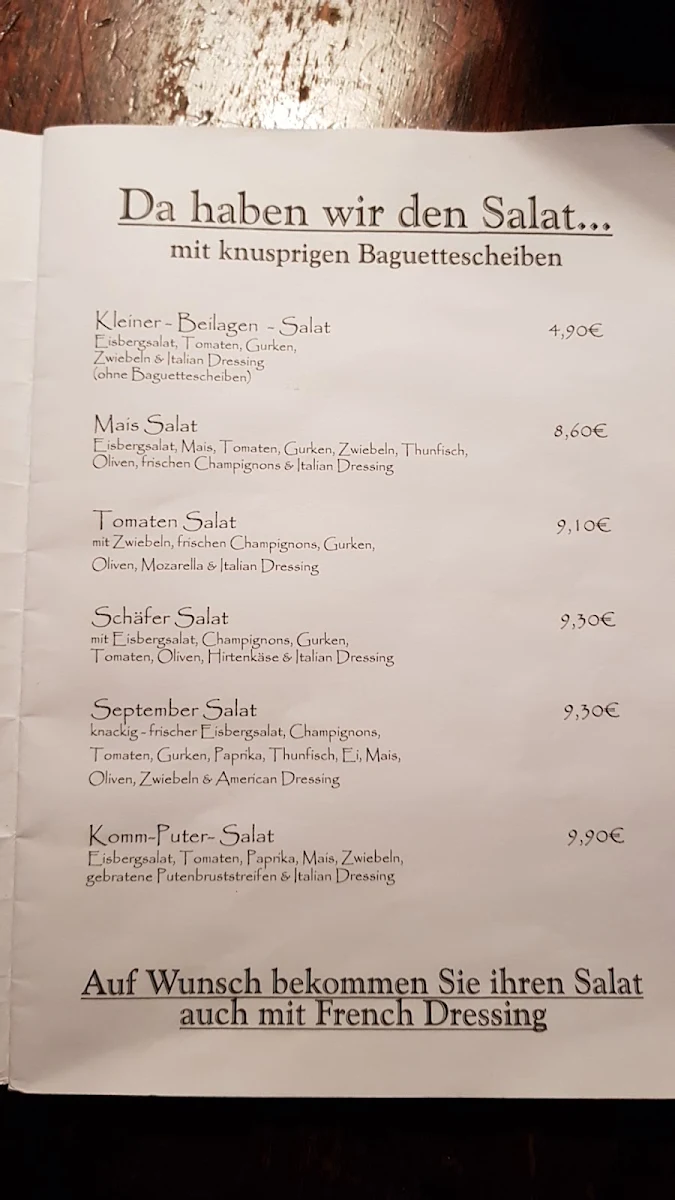 Da haben wir den Salat...
mit knusprigen Baguettescheiben
Kleiner - Beilagen - Salat 4,90€
Eisbergsalat, Tomaten, Gurken,
Zwiebeln & Italian Dressing
(ohne Baguettescheiben)
Mais Salat 8,60€
Eisbergsalat, Mais, Tomaten, Gurken, Zwiebeln, Thunfisch,
Oliven, frischen Champignons & Italian Dressing
Tomaten Salat 9,10€
mit Zwiebeln, frischen Champignons, Gurken,
Oliven, Mozarella & Italian Dressing
Schäfer Salat 9,30€
mit Eisbergsalat, Champignons, Gurken,
Tomaten, Oliven, Hirtenkäse & Italian Dressing
September Salat 9,30€
knackig - frischer Eisbergsalat, Champignons,
Tomaten, Gurken, Paprika, Thunfisch, Ei, Mais,
Oliven, Zwiebeln & American Dressing
Komm-Puter- Salat 9,90€
Eisbergsalat, Tomaten, Paprika, Mais, Zwiebeln,
gebratene Putenbruststreifen & Italian Dressing
Auf Wunsch bekommen Sie ihren Salat
auch mit French Dressing